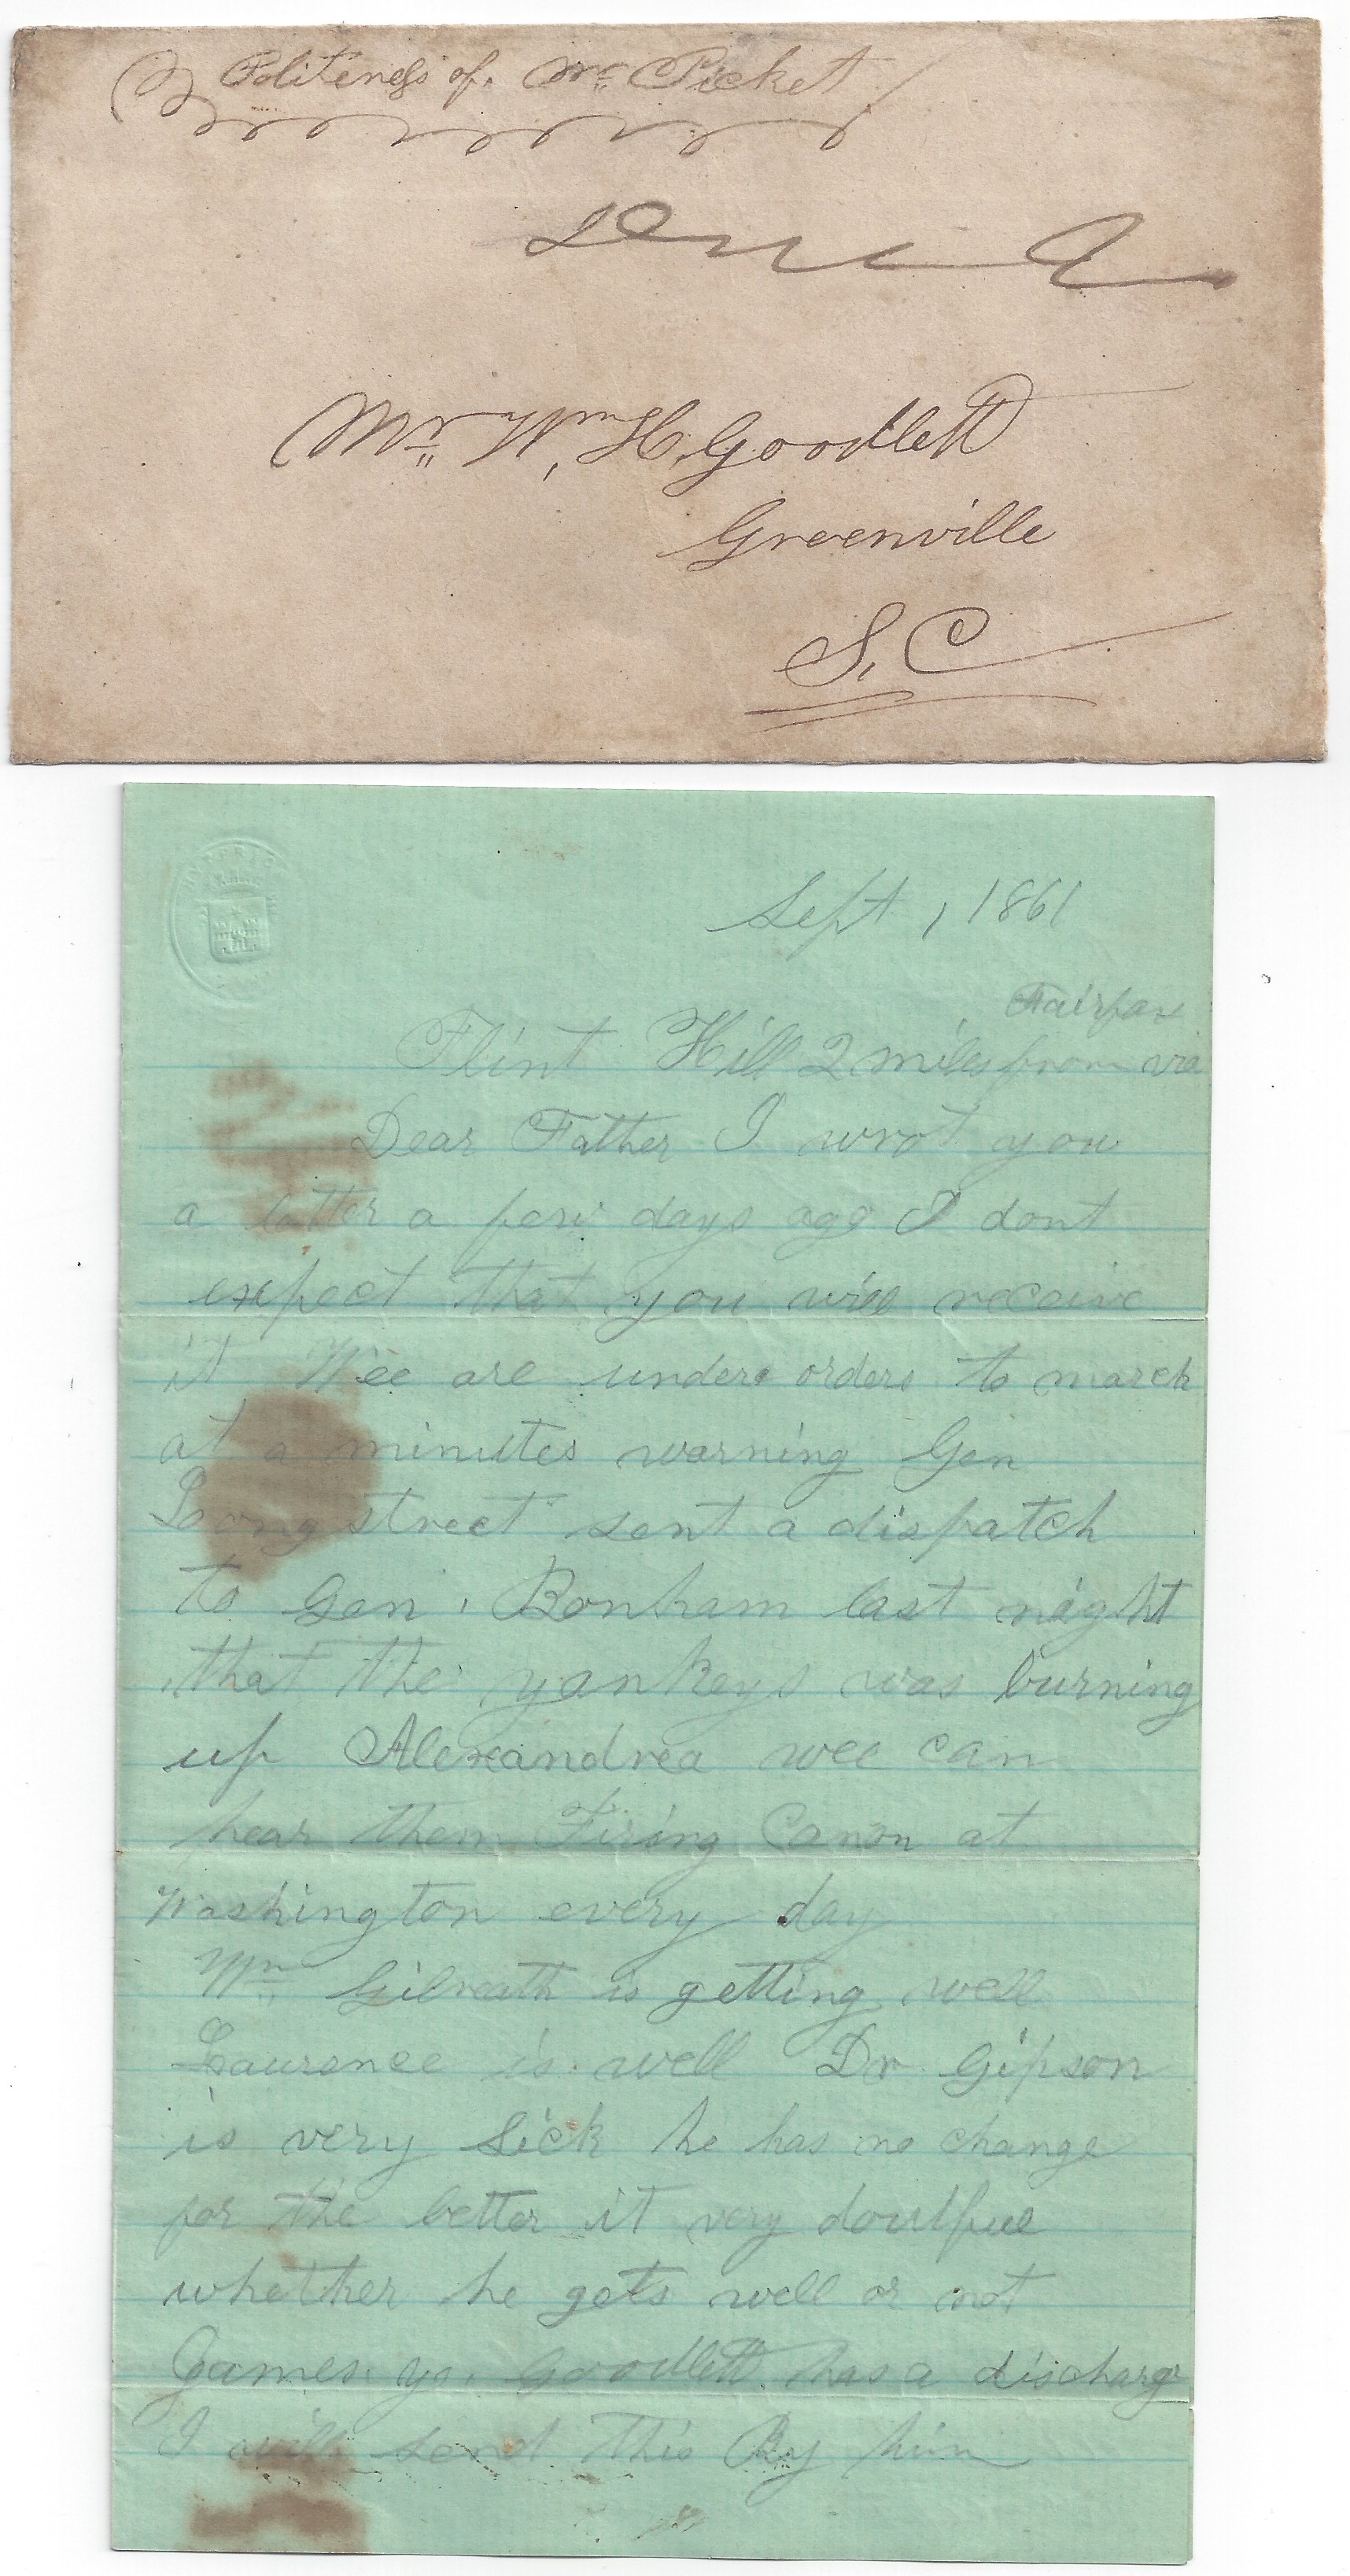 Politeness of. Mr. Picket
Mr. Wm, H. Goodlett
Greenville
S, C
Sept , 1861
Fairfax
Flint Hill 2 miles from via
Dear Father I wrot you
a latter a few days ago I dont
expect that you will receive
it Wee are under orders to march
at a minutes warning Gen
Longstreet sent a dispatch
to Gen. Bonham last night
that the yankeys was burning
up Alexandrea wee can
hear them Firing Canon at
Washington every day
Mr Gilreath is getting well
Laurence is well Dr Gipson
is very Sick he has no change
for the better it very doutfull
whether he gets well or not
James. Goodlett. has a discharg
I will send this By him